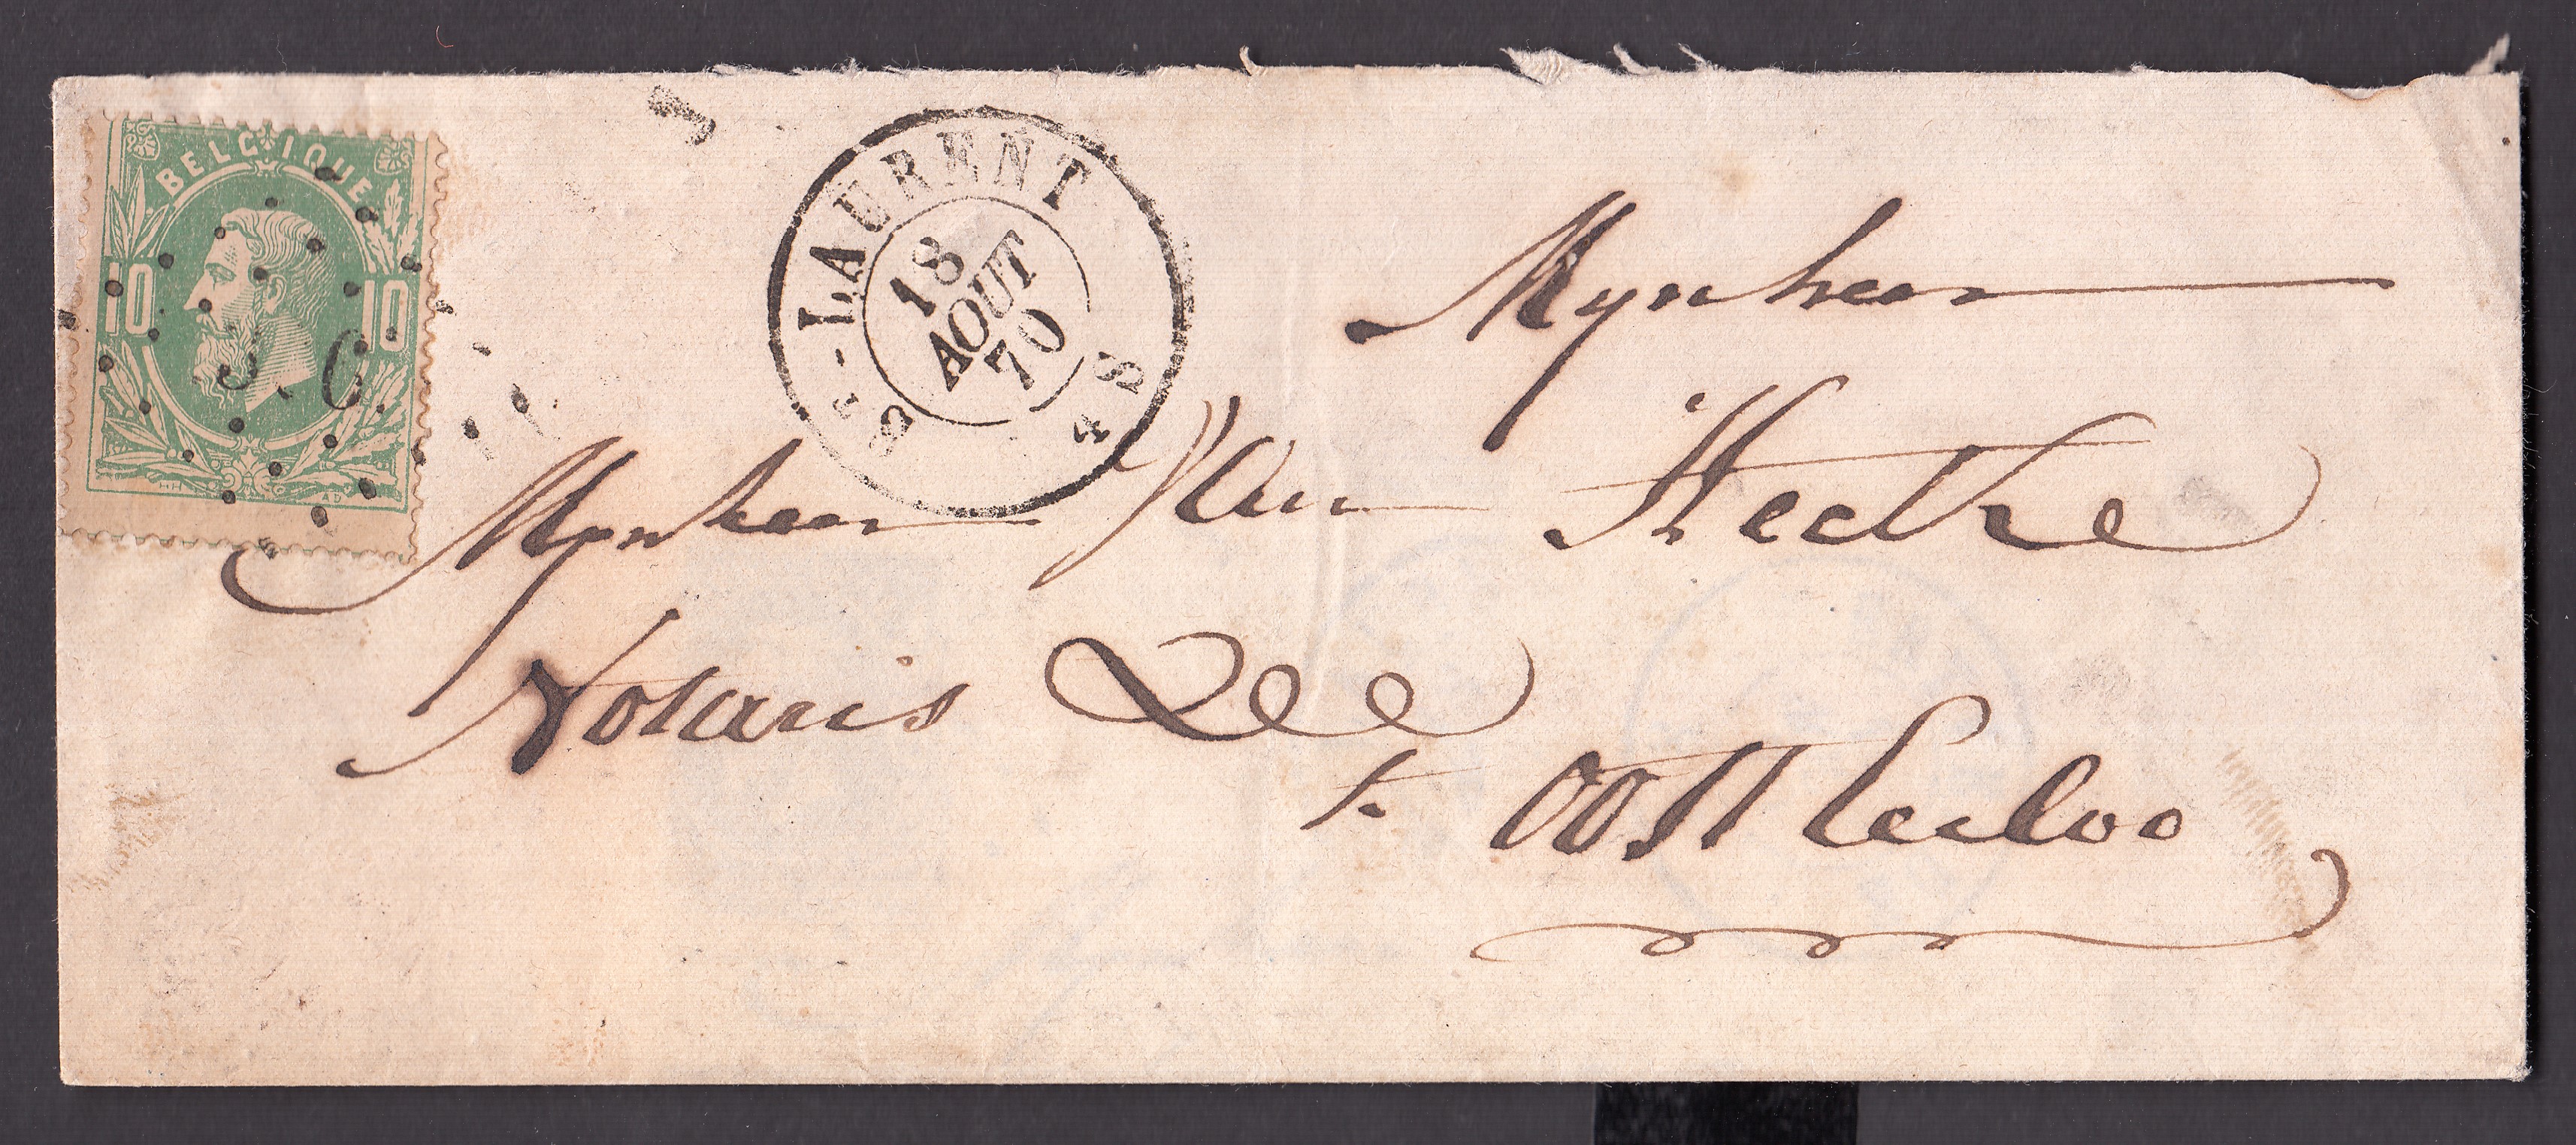 BELGIQUE
10 10
ST-LAURENT
18
AOUT
70
4 S
Mynheer
Mynheer Van Hecke
Notaris Lee
te Oosteecloo